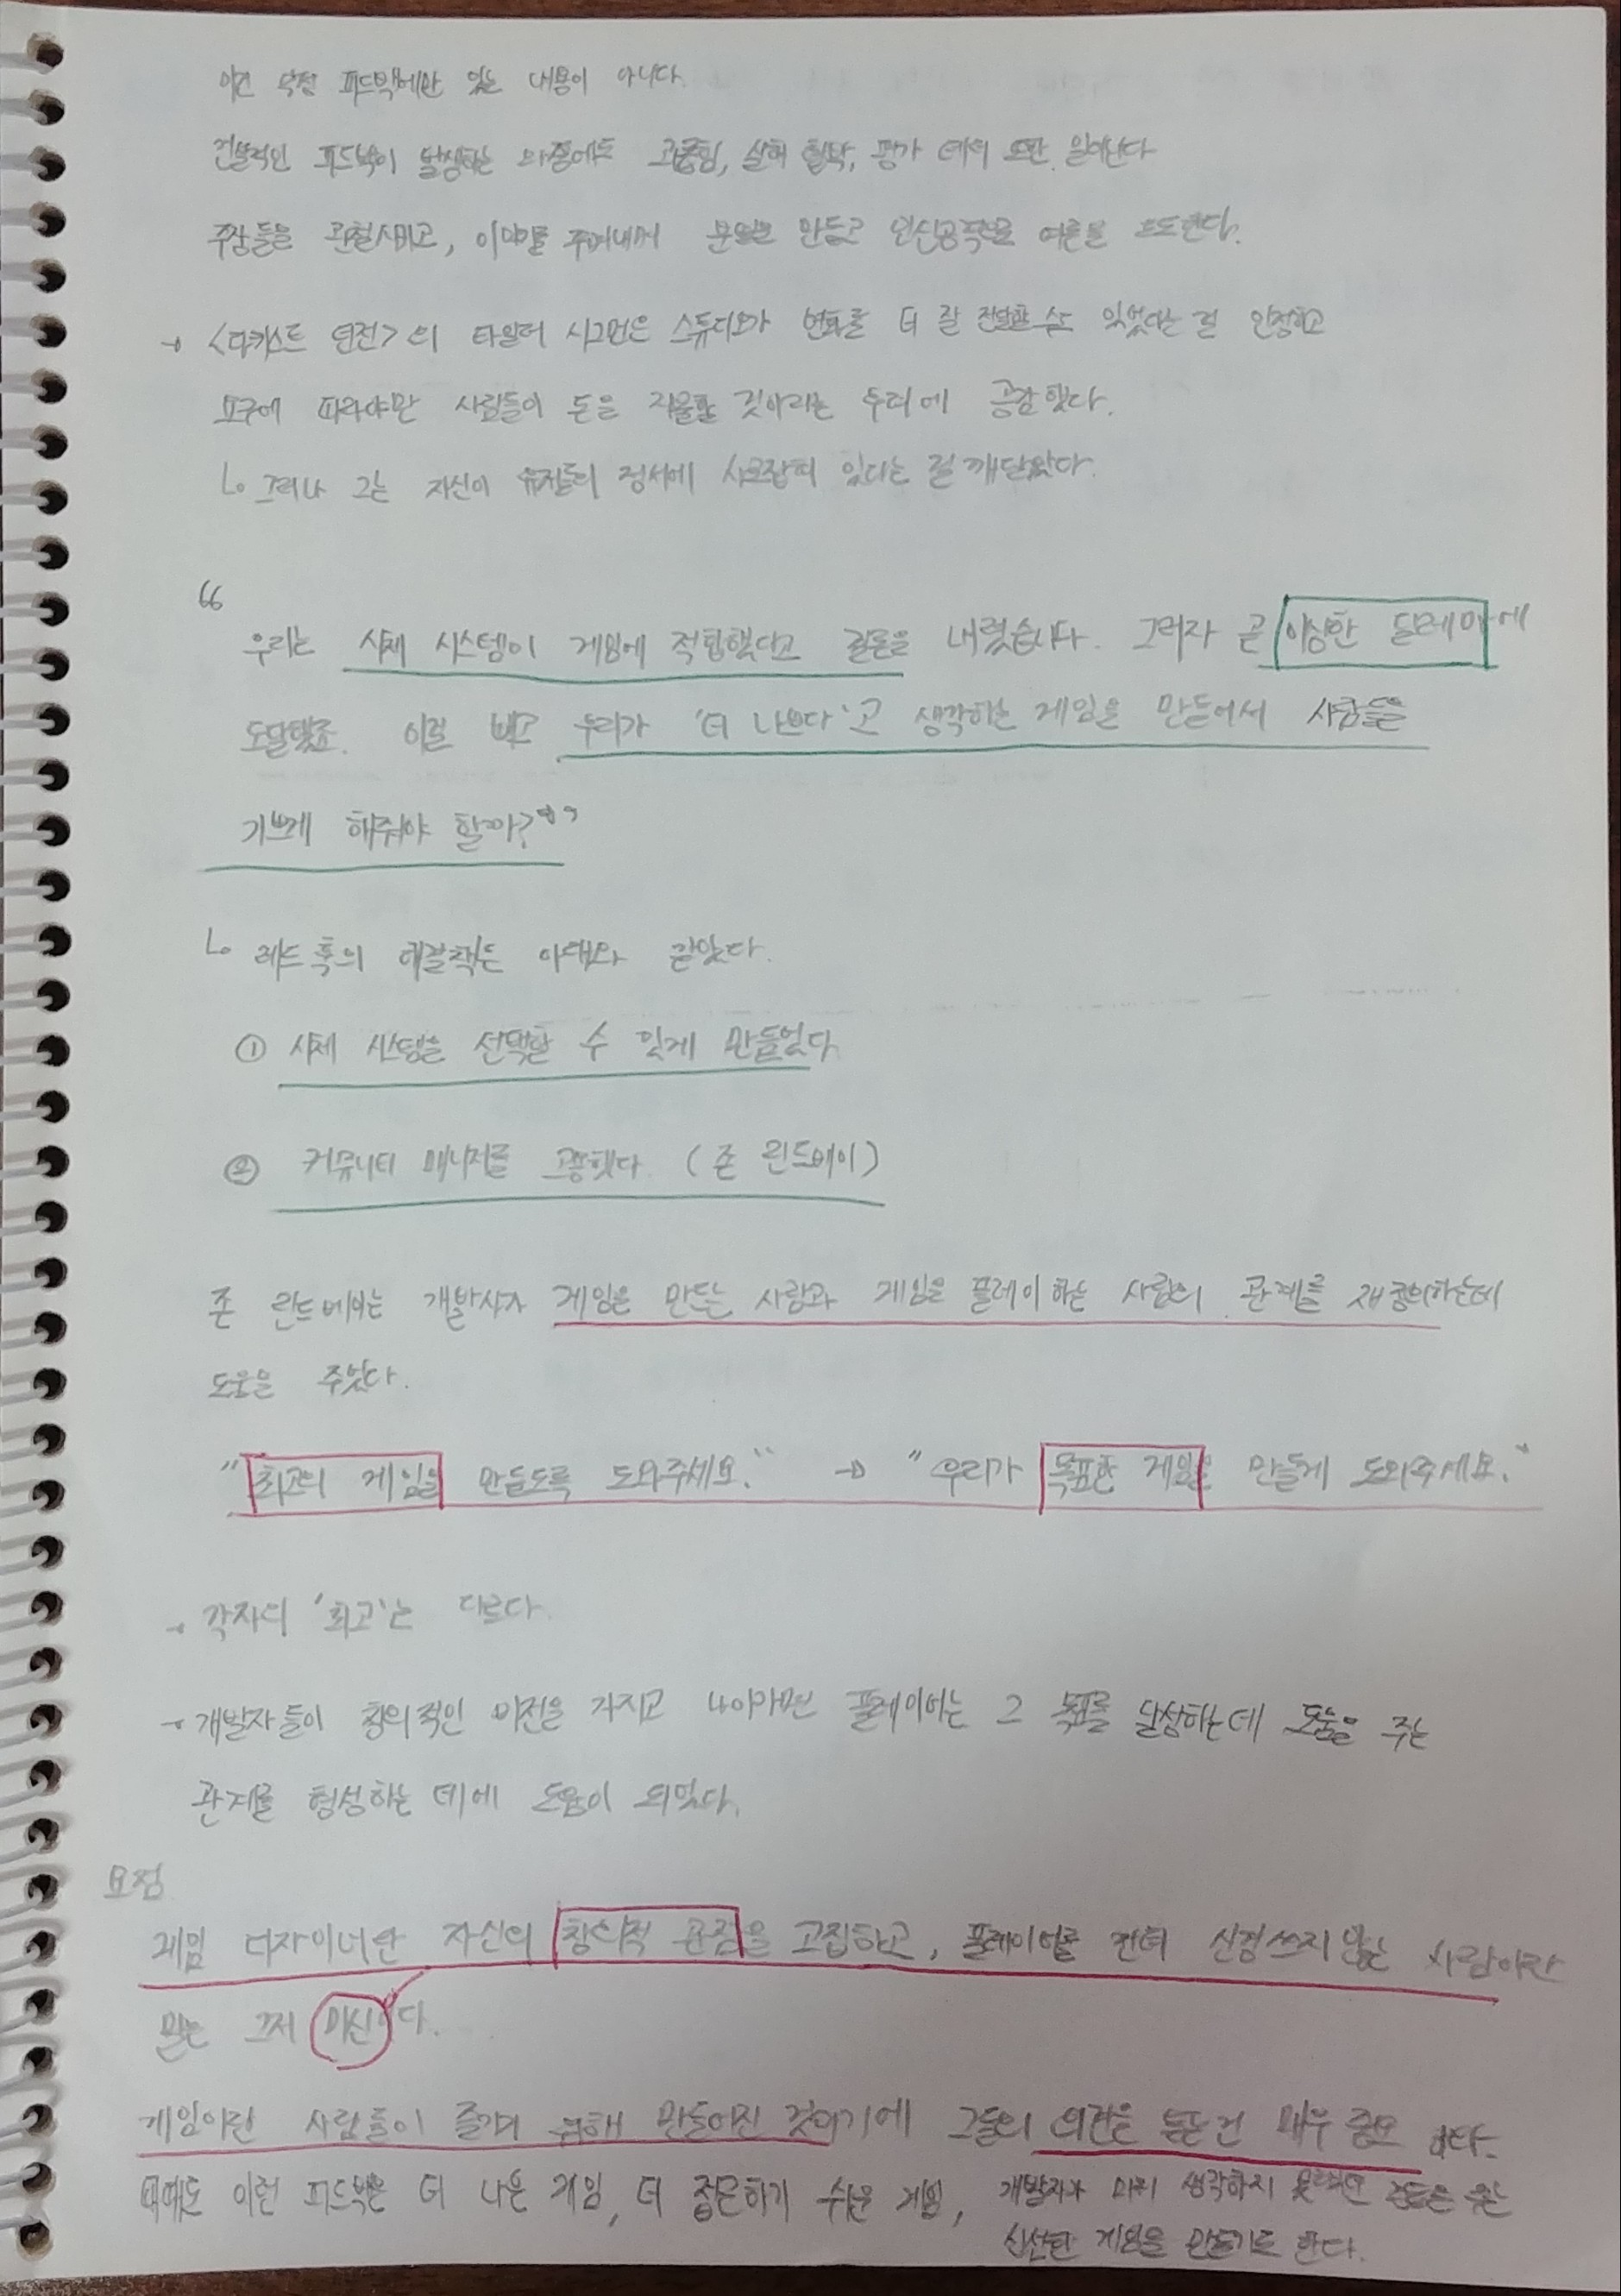 이건 특정 피드백에만 있는 내용이 아니다.
건설적인 피드백이 발생하는 와중에도 괴롭힘, 실허 협박, 평가 테러 또한 일어난다
주장들을 관철시키고, 이야기를 주거내며 분위기를 만들고 인신공격으로 여론을 호도한다.
→ <다키스트 던전>의 타일러 시그먼은 스튜디오가 변화를 더 잘 전달할 수도 있었다는 걸 인정하고
요구에 따라야만 사람들이 돈을 지불할 것이라는 우려에 공감했다.
ㄴ 그러나 그는 자신이 유저들의 정서에 사로잡혀 있다는 걸 깨달았다.
“
우리는 시체 시스템이 게임에 적합했다고 결론을 내렸습니다. 그러자 곧 이상한 딜레마에
도달했죠. 이걸 빼고 우리가 '더 나쁘다'고 생각하는 게임을 만들어서 사람들을
기쁘게 해줘야 할까?”
ㄴ 레드 훅의 해결책은 아래와 같았다.
① 시체 시스템을 선택할 수 있게 만들었다
② 커뮤니티 매니저를 고용했다. (존 린드베이)
존 린드베이는 개발사가 게임을 만드는 사람과 게임을 플레이 하는 사람의 관계를 재정의하는데
도움을 주었다.
"최고의 게임을 만들도록 도와주세요." → "우리가 목표한 게임을 만들게 도와주세요."
→ 각자의 '최고'는 다르다.
→ 개발자들이 창의적인 비전을 가지고 나아가면 플레이어는 그 목표를 달성하는데 도움을 주는
관계를 형성하는 데에 도움이 되었다.
요점
게임 디자이너란 자신의 창의적 관점을 고집하고, 플레이어를 전혀 신경쓰지 않는 사람이란
말은 그저 미신이다.
게임이란 사람들이 즐기기 위해 만들어진 것이기에 그들의 의견을 듣는 건 매우 중요하다.
때때로 이런 피드백은 더 나은 게임, 더 접근하기 쉬운 게임, 개발자가 미처 생각하지 못했던
신선한 게임을 만들기도 한다.